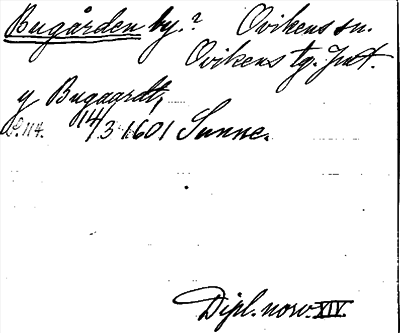 Bugården by.? Ovikens sn.
Ovikens tg. Jmt.
y Bugaardt,
14/3 1601 Sunne.
Dipl. norv. XIV.